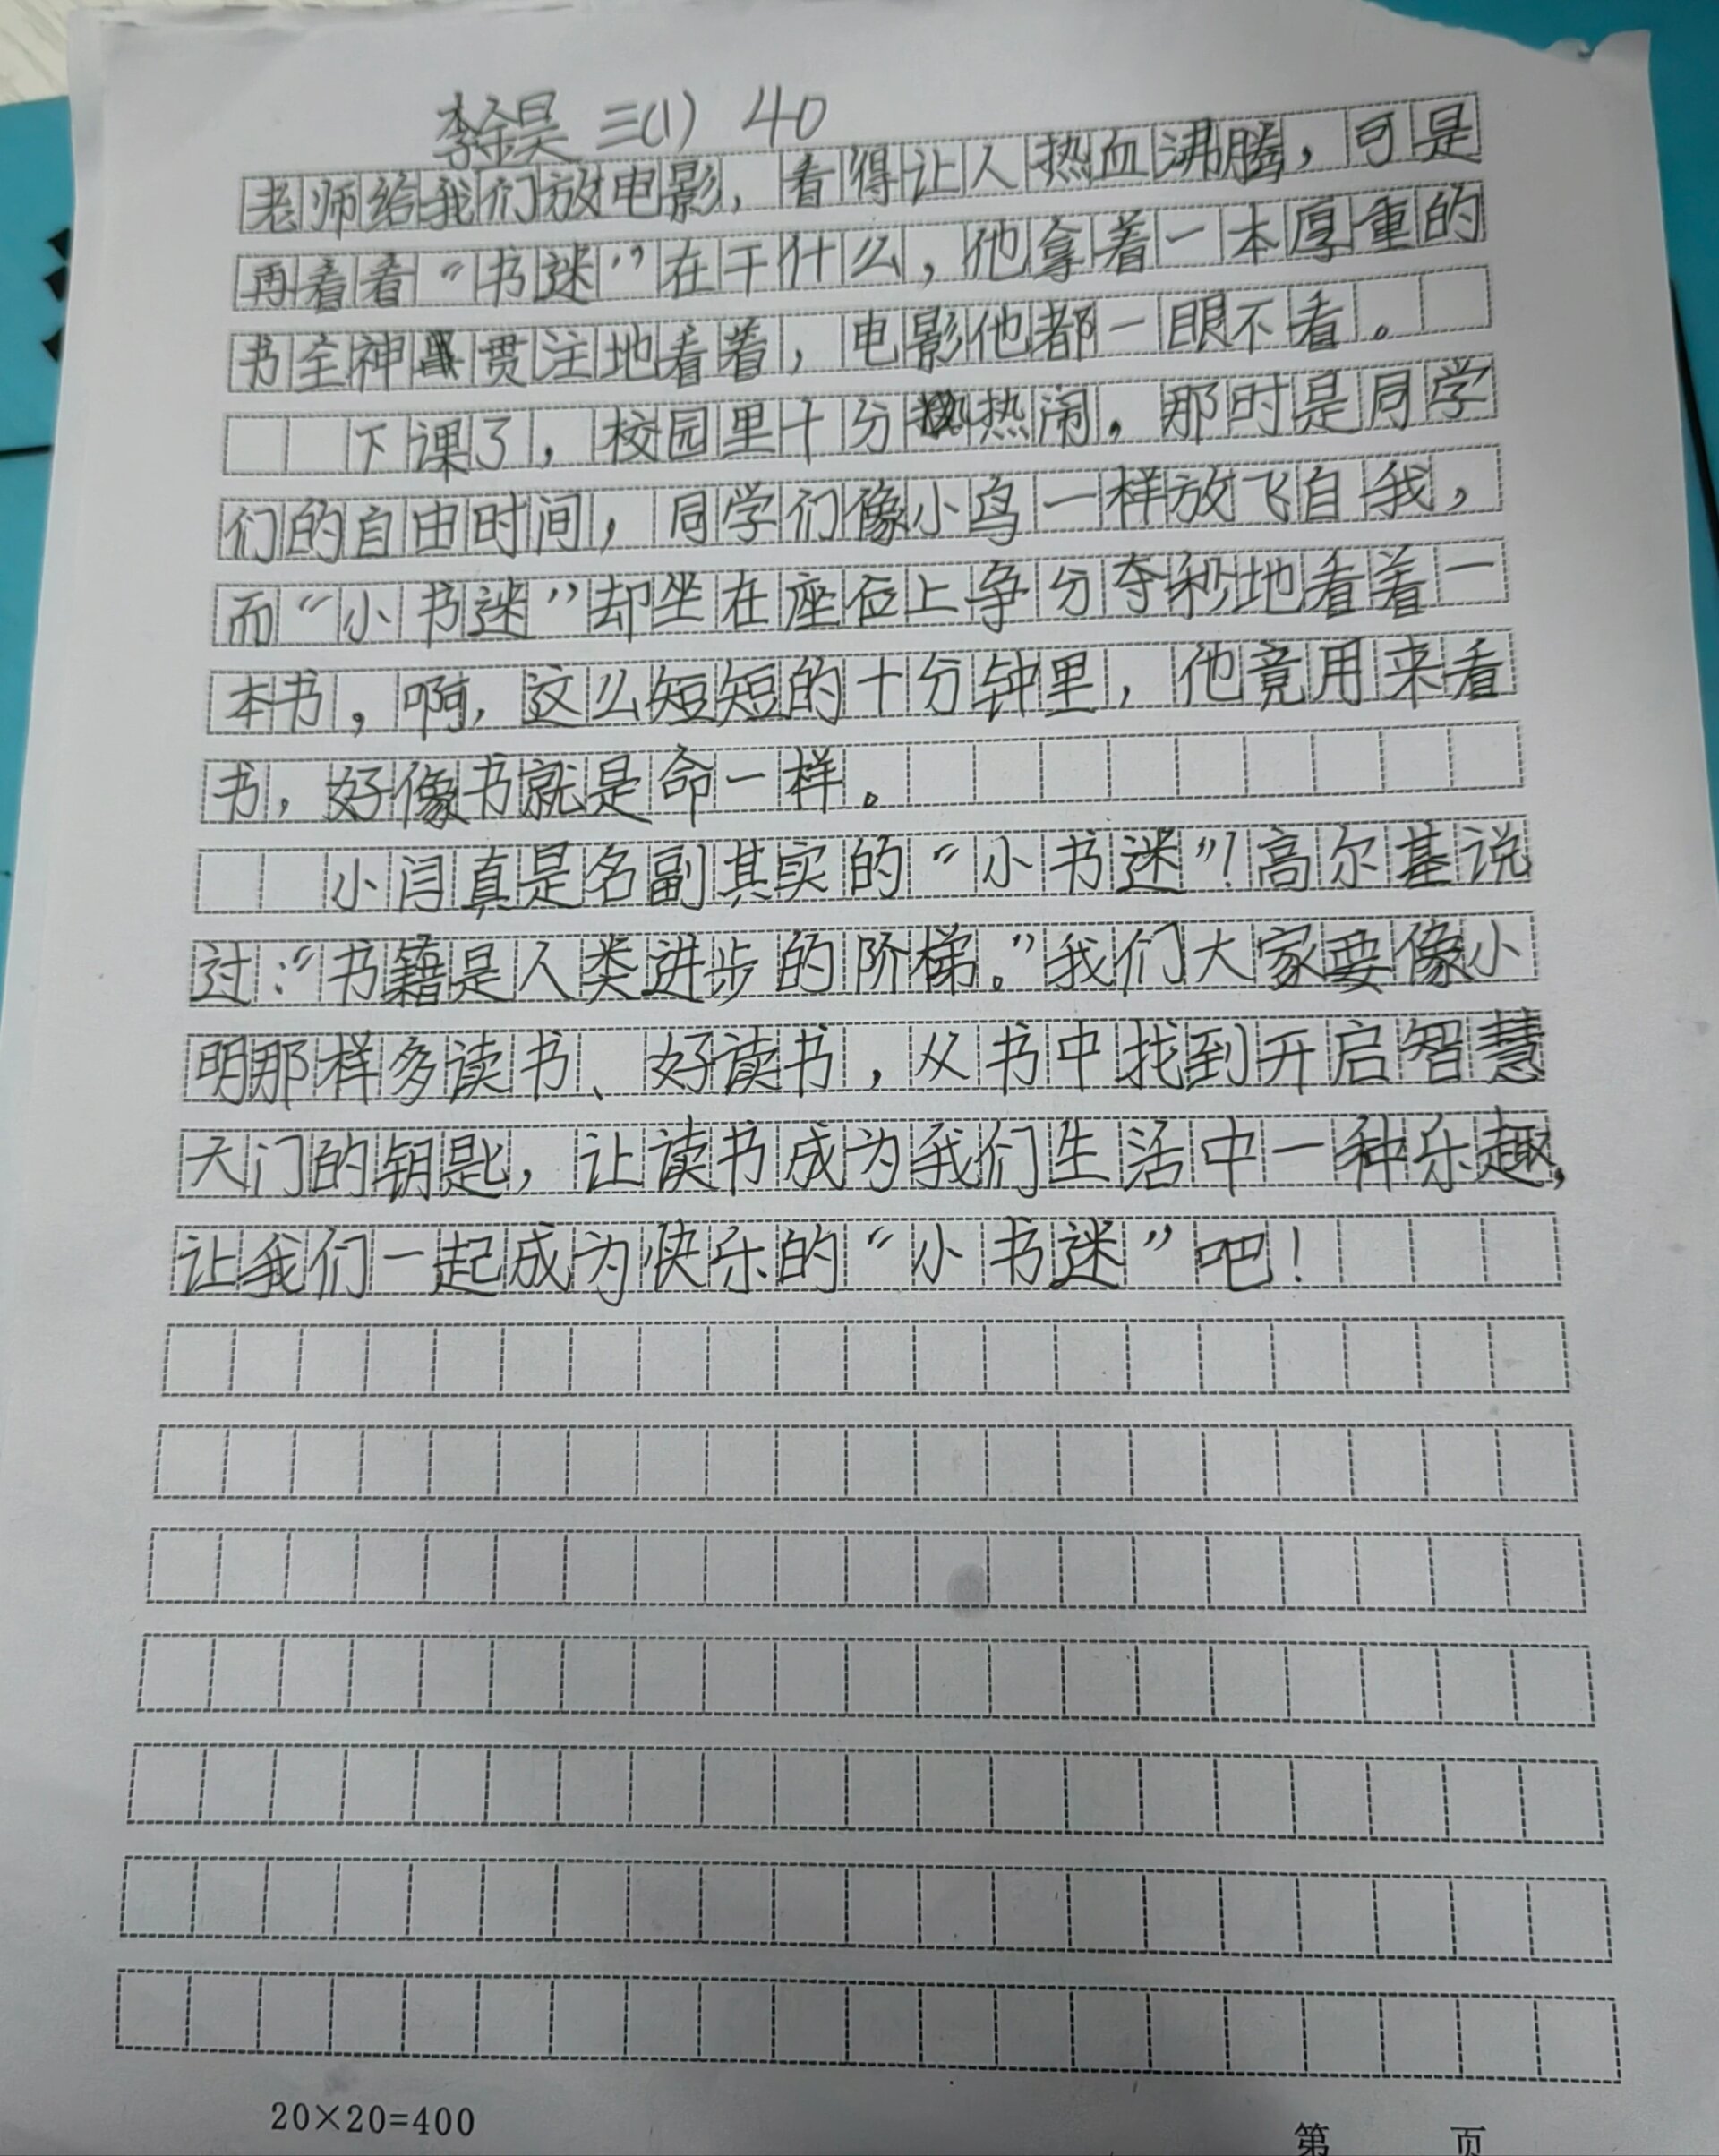 李余昊 三(1) 40
老师给我们放电影，看得让人热血沸腾，可是
再看看“书迷”在干什么，他拿着一本厚重的
书全神贯注地看着，电影他都一眼不看。
下课了，校园里十分热闹，那时是同学
们的自由时间，同学们像小鸟一样放飞自我，
而“小书迷”却坐在座位上争分夺秒地看着一
本书，啊，这么短短的十分钟里，他竟用来看
书，好像书就是命一样。
小闫真是名副其实的“小书迷”！高尔基说
过：“书籍是人类进步的阶梯。”我们大家要像小
明那样多读书、好读书，从书中找到开启智慧
大门的钥匙，让读书成为我们生活中一种乐趣，
让我们一起成为快乐的“小书迷”吧！
20×20=400
第 页